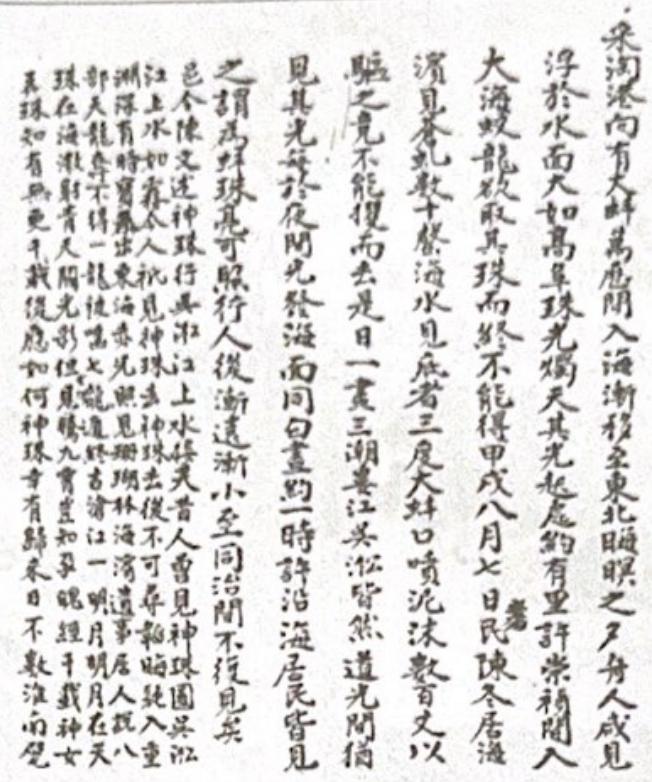 采淘港向有大蚌萬歷間入海漸移至東北晦暝之夕舟人咸見
浮於水面大如高阜珠光燭天其光起處約有里許崇禎間入
大海蛟龍欲取其珠而終不能得甲戌八月七日民陳冬居海
濱見蒼虬數十盤海水見底者三度大蚌口噴泥沫數百丈以
驅之竟不能攫而去是日一晝三潮婁江吳淞皆然道光間猶
見其光每於夜間光發海面同白晝約一時許沿海居民皆見
之謂為蚌珠亮可照行人後漸遠漸小至同治間不復見矣
邑令陳文述神珠行吳淞江上水接天昔人曾見神珠圓吳淞
江上水如霧令人祇見神珠去神珠去後不可尋韜晦純入重
淵深有時寶氣出東海赤光照見珊瑚林海濱遺事居人說八
部天龍奪不得一龍彼噬七龍遁終古滄江一明月明月在天
珠在海激射青天開光影但見騰九霄豈知孕魄經千載神女
弄珠知有無更千載後應如何神珠幸有歸來日不數淮南